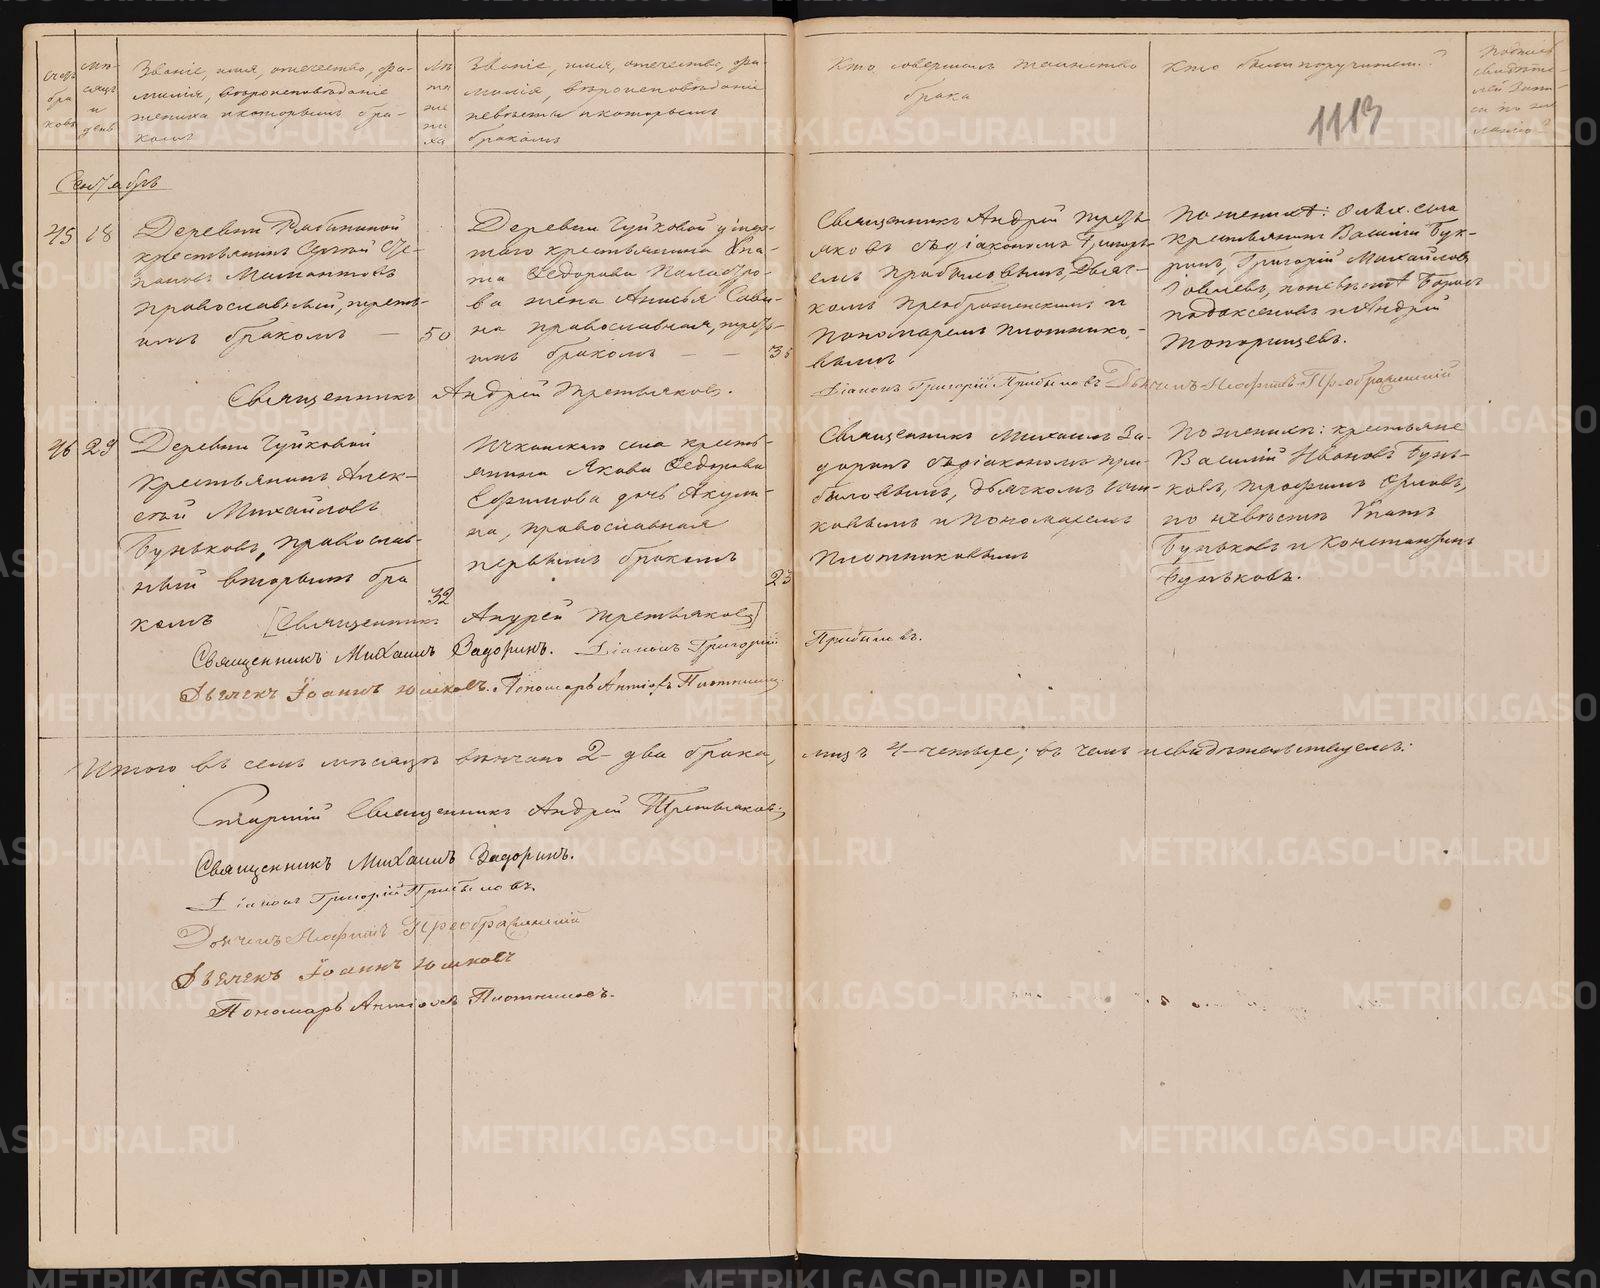 Счетъ бра ковъ
Мѣ- сяцъ и день
Званіе, имя, отчество, фа-
милія, вѣроисповѣданіе
жениха и которымъ бра-
комъ
Лѣ та же ни ха
Званіе, имя, отчество, фа-
милія, вѣроисповѣданіе
невѣсты и которымъ
бракомъ
Кто совершалъ таинство
брака
Кто были поручители?
Подпись
свидѣте-
лей запи-
си по же
ланію
1113
Сентябрь
45 18
Деревни Рябининой
крестьянинъ Сергѣй Сте-
пановъ
православный, треть-
имъ бракомъ — 50
Деревни Чупковой умер-
шаго крестьянина Ипа-
та Федорова
ва жена Анисья Сави-
на православная, треть-
имъ бракомъ — — 35
Священникъ Андрей Треть-
яковъ съ діакономъ Григорь-
емъ Прибылевымъ, Дьяч-
комъ Преображенскимъ и
Пономаремъ Плотнико-
вымъ
По женихѣ: села
крестьянинъ Василій Бук-
ринъ, Григорій Михайловъ
по невѣстѣ Борисъ
Подаксеновъ и Андрей
Топорищевъ.
Священникъ Андрей Третьяковъ.
Діаконъ Григорій Прибылевъ Дьячекъ Преображенскій
46 29
Деревни Чупковой
крестьянинъ Алек-
сѣй Михайловъ
Буньковъ, православ-
ный вторымъ бра
комъ 32
села кресть-
янина Якова Федорова
Ефимова дочь Акули-
на, православная
первымъ бракомъ 23
Священникъ Михаилъ За-
доринъ съ діакономъ При-
былевымъ, дьячкомъ Юш-
ковымъ и Пономаремъ
Плотниковымъ
По женихѣ: крестьяне
Василій Ивановъ Бунь-
ковъ, Трофимъ Орловъ,
по невѣстѣ Ипатъ
Буньковъ и Константинъ
Буньковъ.
[Священникъ Андрей Третьяковъ]
Священникъ Михаилъ Задоринъ. Діаконъ Григорій Прибылевъ.
Дьячекъ Іоаннъ Юшковъ. Пономарь Антіохъ Плотниковъ
Итого въ семъ мѣсяцѣ вѣнчано 2 – два брака, лицъ 4 – четыре; въ чемъ и свидѣтельствуемъ:
Старшій Священникъ Андрей Третьяковъ;
Священникъ Михаилъ Задоринъ.
Діаконъ Григорій Прибылевъ.
Дьячекъ Преображенскій
Дьячекъ Іоаннъ Юшковъ
Пономарь Антіохъ Плотниковъ.
METRIKI.GASO-URAL.RU